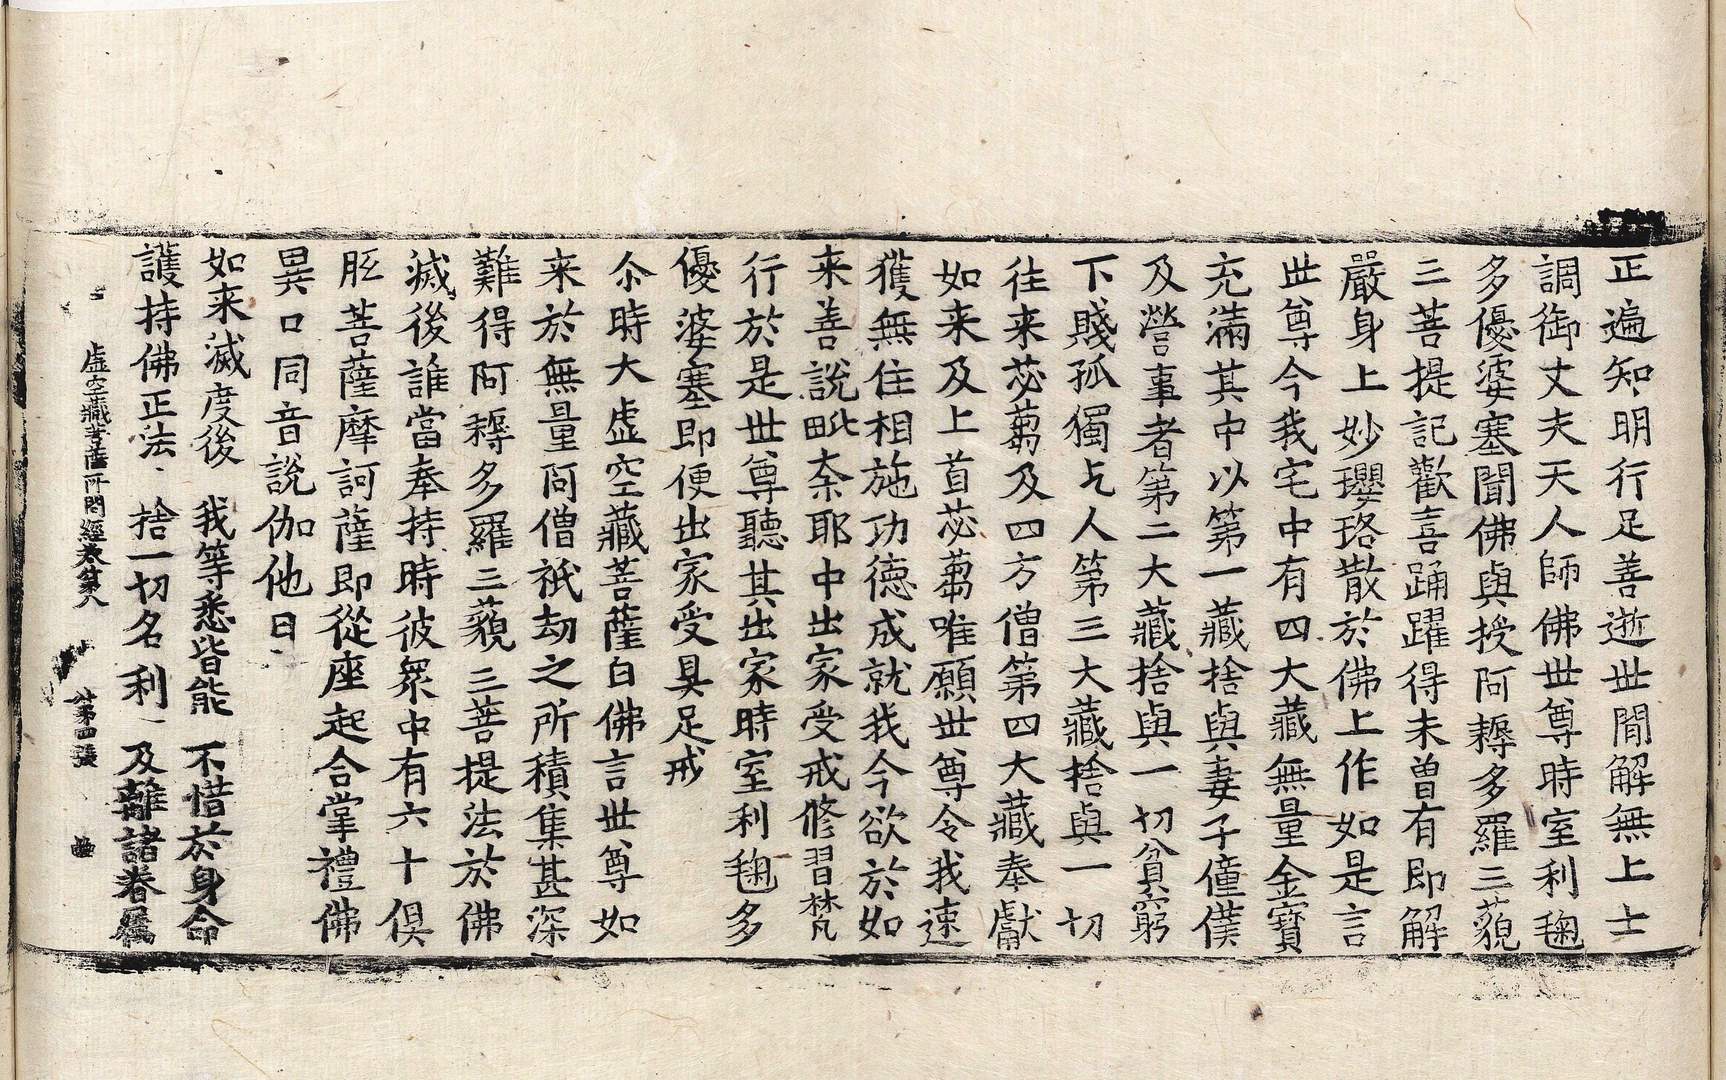 正遍知明行足善逝世間解無上士
調御丈夫天人師佛世尊時室利毱
多優婆塞聞佛與授阿耨多羅三藐
三菩提記歡喜踊躍得未曾有即解
嚴身上妙瓔珞散於佛上作如是言
世尊今我宅中有四大藏無量金寶
充滿其中以第一藏捨與妻子僮僕
及營事者第二大藏捨與一切貧窮
下賤孤獨乞人第三大藏捨與一切
往来苾蒭及四方僧第四大藏奉獻
如来及上首苾蒭唯願世尊令我速
獲無住相施功德成就我今欲於如
来善說毗奈耶中出家受戒修習梵
行於是世尊聽其出家時室利毱多
優婆塞即便出家受具足戒
尒時大虚空藏菩薩白佛言世尊如
来於無量阿僧祇劫之所積集甚深
難得阿耨多羅三藐三菩提法於佛
滅後誰當奉持時彼眾中有六十俱
胝菩薩摩訶薩即從座起合掌禮佛
異口同音說伽他曰
如来滅度後 我等悉皆能 不惜於身命
護持佛正法 捨一切名利 及離諸眷屬
虚空藏菩薩所問經卷第八 第四張